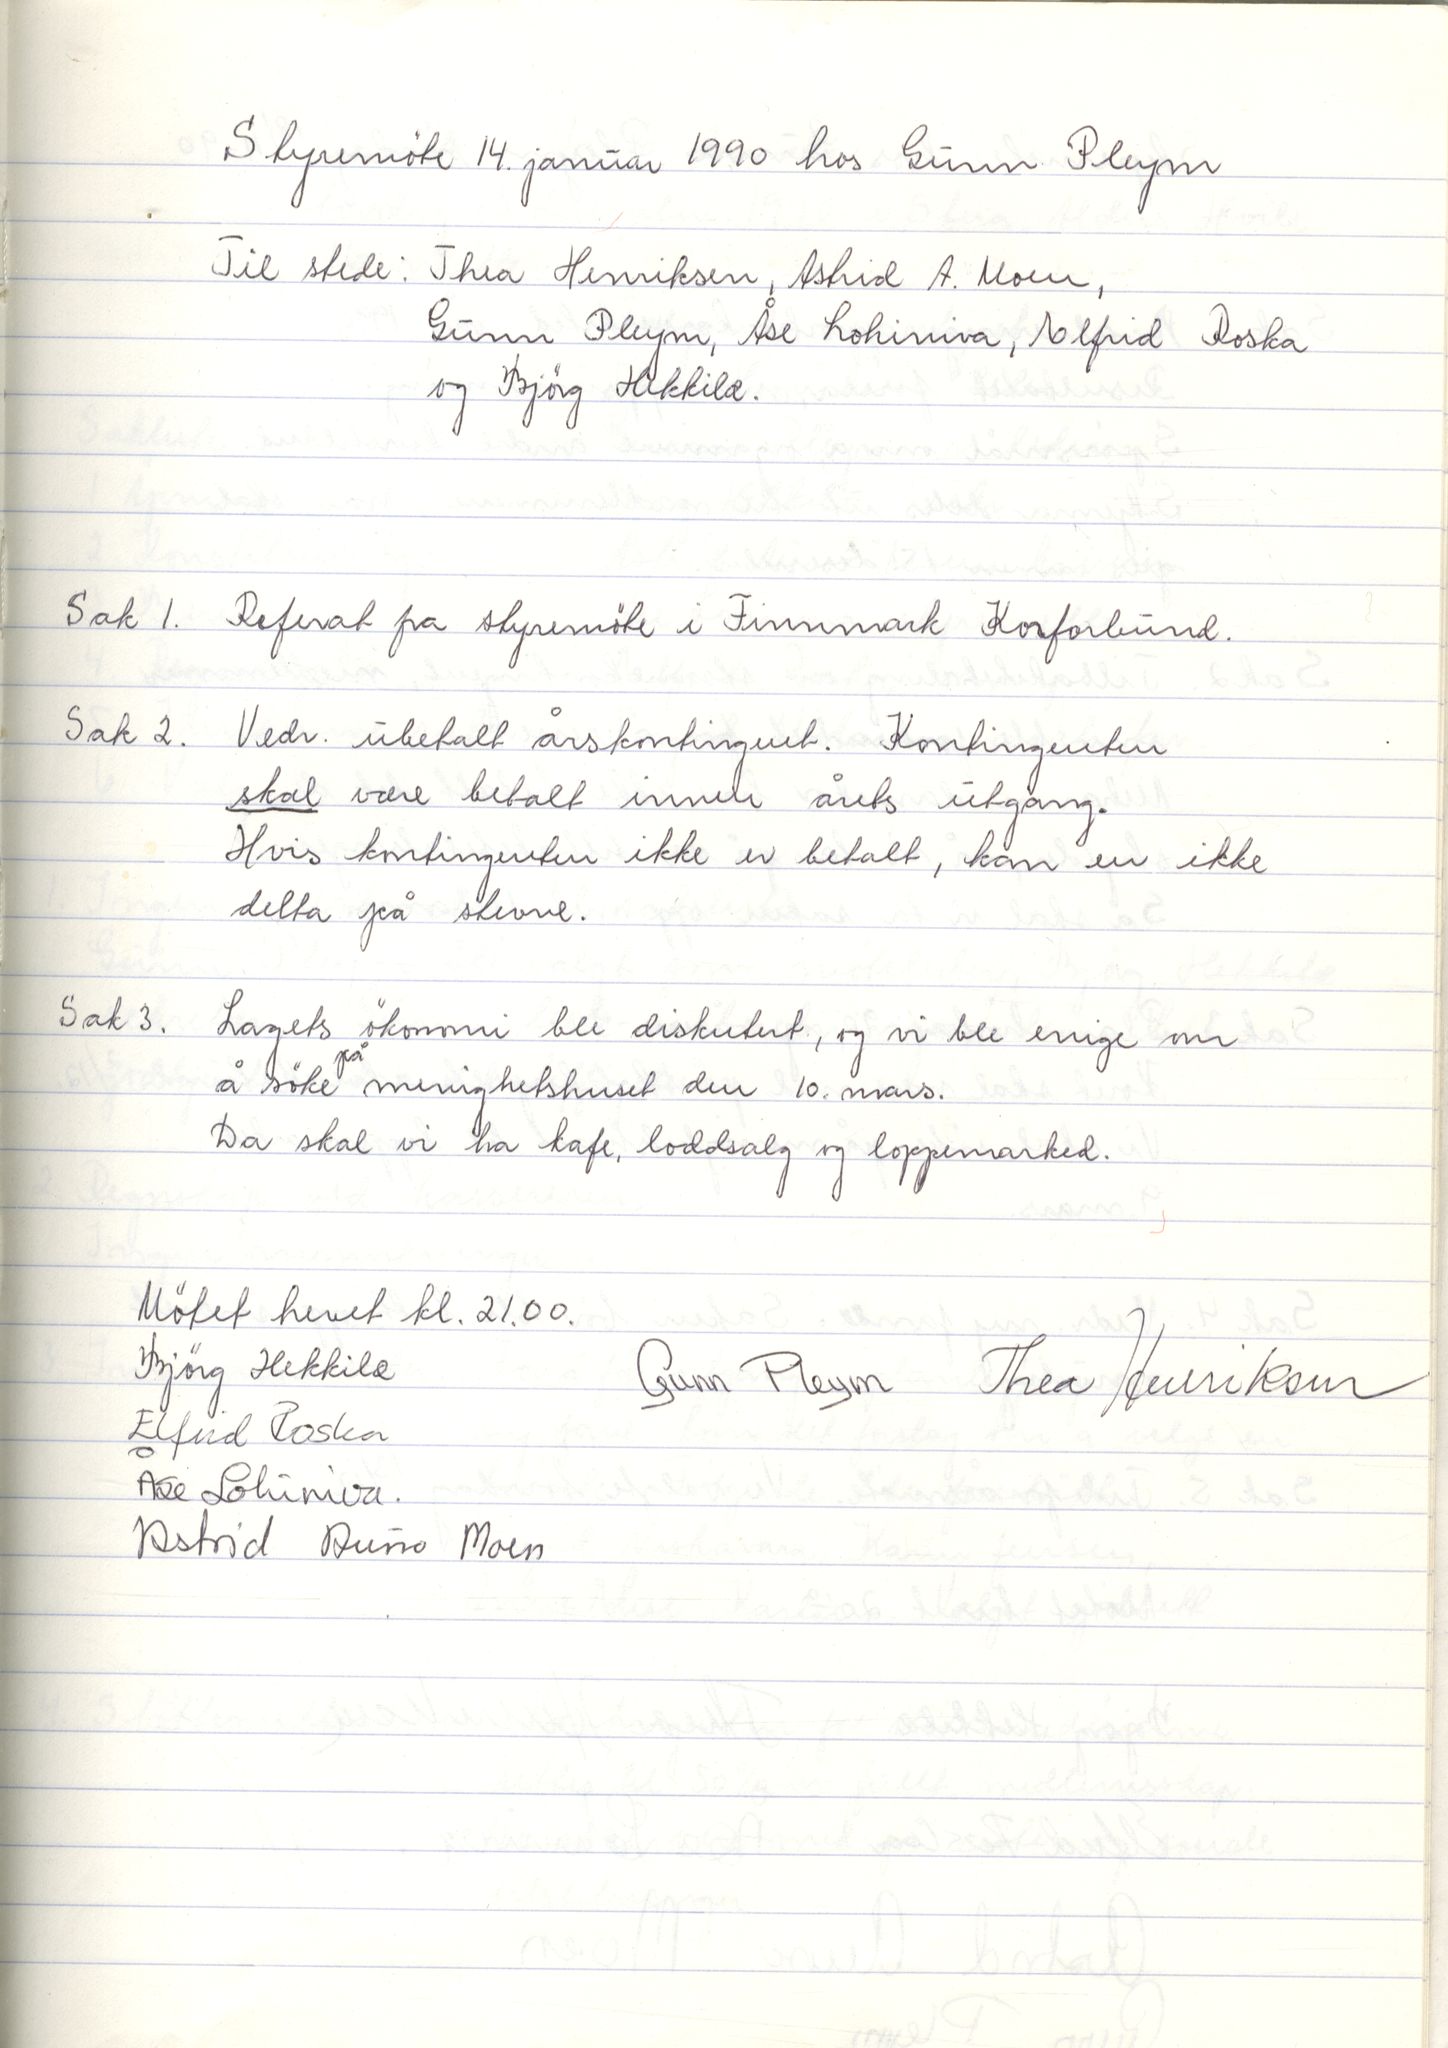 Styremöte 14. januar 1990 hos Gunn Pleym
Til stede: Thea Henriksen, Astrid A. Moen,
Gunn Pleym, Åse Lohiniva, Elfrid Roska
og Björg Hekkilæ.
Sak 1. Referat fra styremöte i Finnmark Korforbund.
Sak 2. Vedr. ubetalt årskontingent. Kontingenten
skal være betalt innen årets utgang.
Hvis kontingenten ikke er betalt, kan en ikke
delta på stevne.
Sak 3. Lagets ökonomi ble diskutert, og vi ble enige om
å söke på menighetshuset den 10. mars.
Da skal vi ha kafe, loddsalg og loppemarked.
Mötet hevet kl. 21.00.
Björg Hekkilæ Gunn Pleym Thea Henriksen
Elfrid Roska
Åse Lohiniva.
Astrid Auno Moen